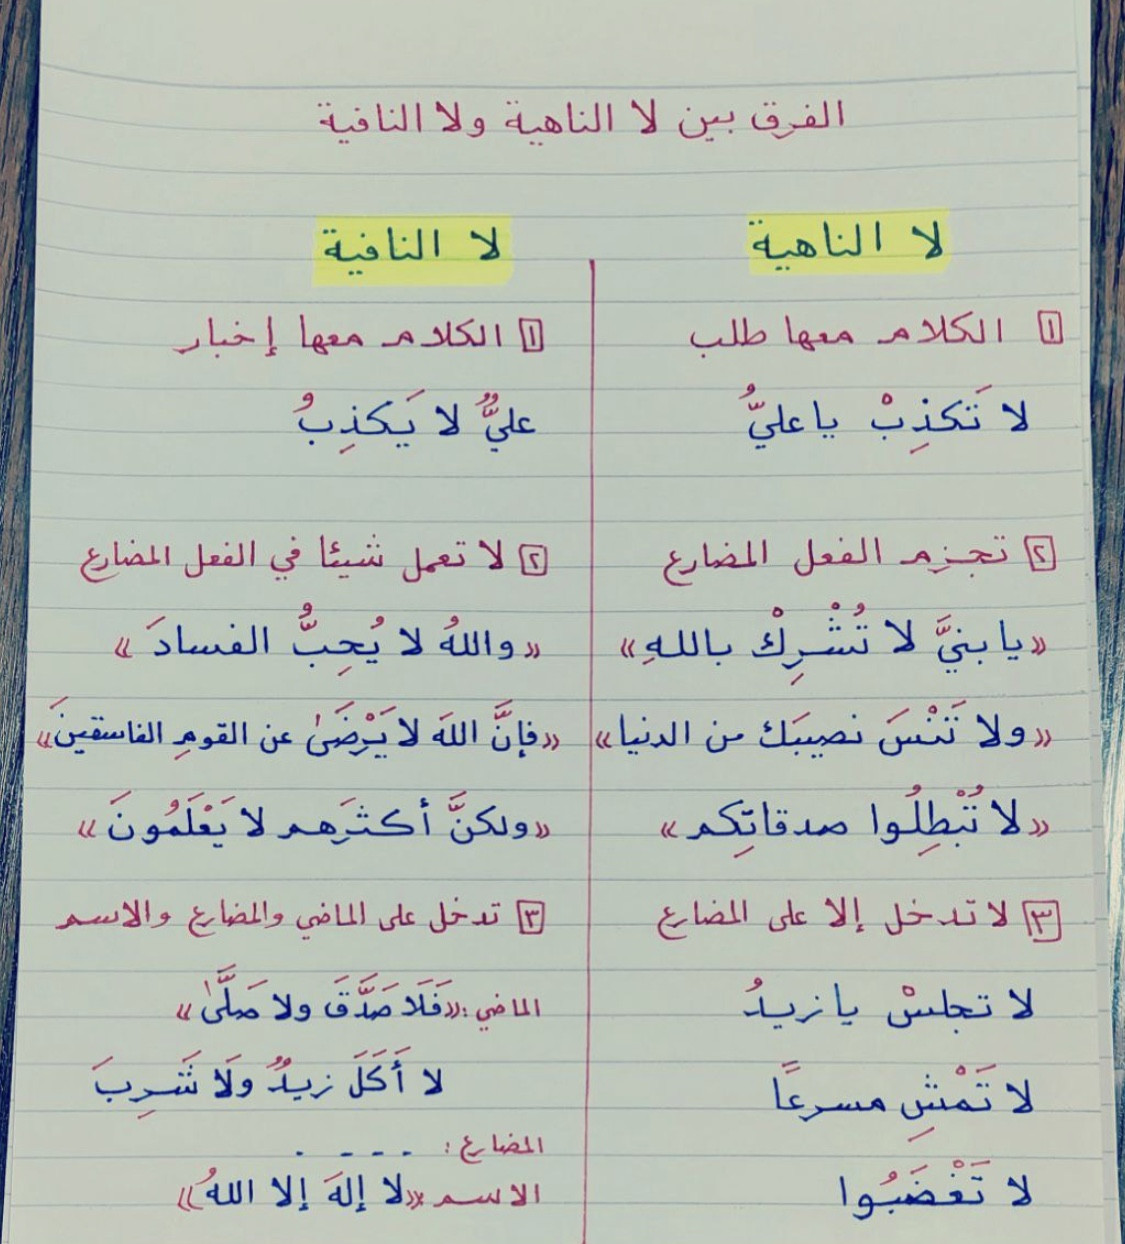 الفرق بين لا الناهية ولا النافية
لا الناهية
١ الكلام معها طلب
لا تَكذِبْ يا عليُّ
٢ تجزم الفعل المضارع
«يا بنيَّ لا تُشْرِكْ باللهِ»
«ولا تَنْسَ نصيبَك من الدنيا»
«لا تُبْطِلُوا صدقاتِكم»
٣ لا تدخل إلا على المضارع
لا تجلسْ يا زيدُ
لا تَمْشِ مسرعًا
لا تَغْضَبُوا
لا النافية
١ الكلام معها إخبار
عليٌّ لا يَكذِبُ
٢ لا تعمل شيئا في الفعل المضارع
«واللهُ لا يُحِبُّ الفسادَ»
«فإنَّ اللهَ لا يَرْضَىٰ عن القومِ الفاسقينَ»
«ولكنَّ أكثرَهم لا يَعْلَمُونَ»
٣ تدخل على الماضي والمضارع والاسم
الماضي: «فَلَا صَدَّقَ ولا صَلَّىٰ»
لا أَكَلَ زيدٌ ولَا شَرِبَ
المضارع: ....
الاسم «لا إلهَ إلا اللهُ»